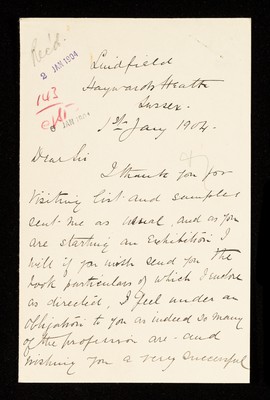 Rec'd.
2 JAN 1904
143
JAN 1904
Lindfield
Haywards Heath
Sussex.
1st Jany 1904.
Dear Sir
I thank you for
Visiting list and samples
sent me as usual, and as you
are starting an Exhibition I
will if you wish send you the
book particulars of which I enclose
as directed, I feel under an
obligation to you as indeed so many
of the profession are - and
wishing you a very successful